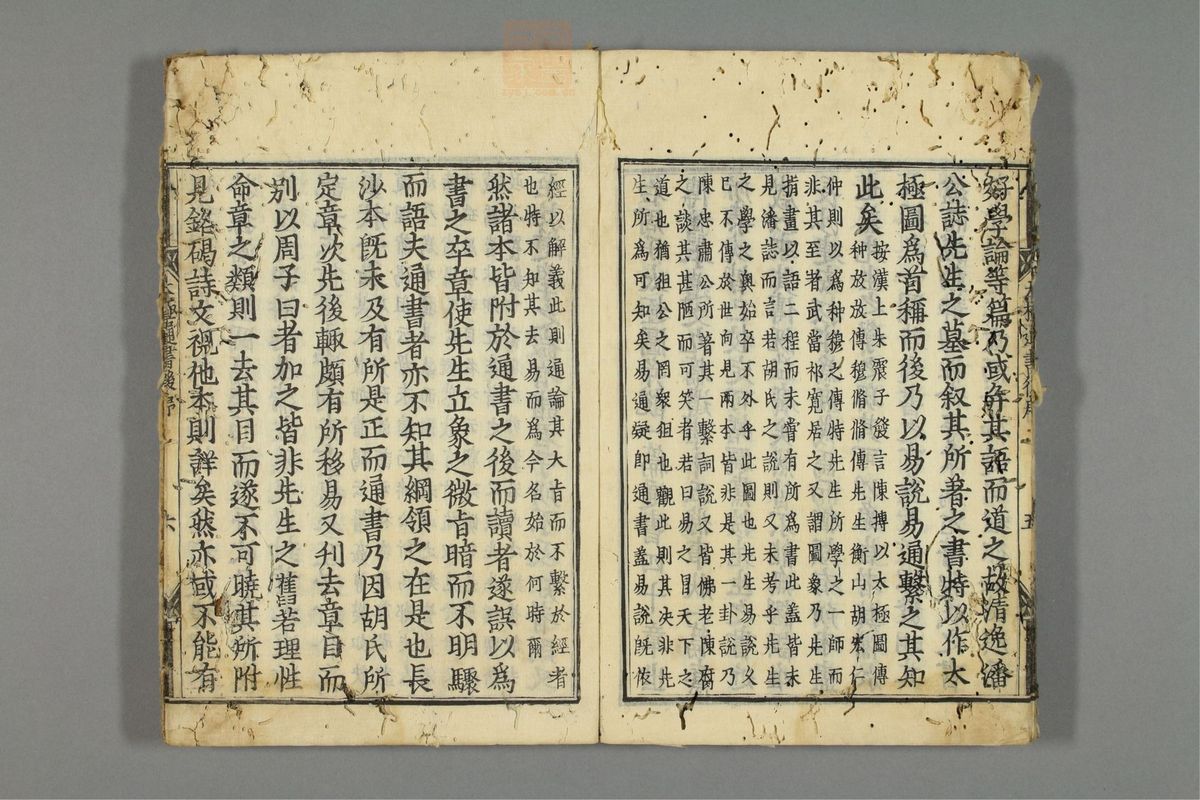 好學論等篇乃或幷其語而道之故淸逸潘
公誌先生之墓而叙其所著之書特以作太
極圖爲首稱而後乃以易說易通繫之其知
此矣
按漢上朱震子發言陳摶以太極圖傳
种放放傳穆脩脩傳先生衡山胡宏仁
仲則以爲种穆之傳特先生所學之一師而
非其至者武當祁寬居之又謂圖象乃先生
指畫以語二程而未甞有所爲書此盖皆未
見潘誌而言若胡氏之說則又未考乎先生
之學之奥始卒不外乎此圖也先生易說久
已不傳於世向見兩本皆非是其一卦說乃
陳忠肅公所著其一繫詞說又皆佛老陳腐
之談其甚陋而可笑者若曰易之冒天下之
道也猶狙公之罔衆狙也觀此則其决非先
生所爲可知矣易通疑卽通書盖易說旣依
經以解義此則通論其大旨而不繫於經者
也特不知其去易而爲今名始於何時爾
然諸本皆附於通書之後而讀者遂誤以爲
書之卒章使先生立象之微旨暗而不明驟
而語夫通書者亦不知其綱領之在是也長
沙本旣未及有所是正而通書乃因胡氏所
定章次先後輙頗有所移易又刋去章目而
别以周子曰者加之皆非先生之舊若理性
命章之類則一去其目而遂不可曉其所附
見銘碣詩文視他本則詳矣然亦或不能有
太極通書後序
六
五